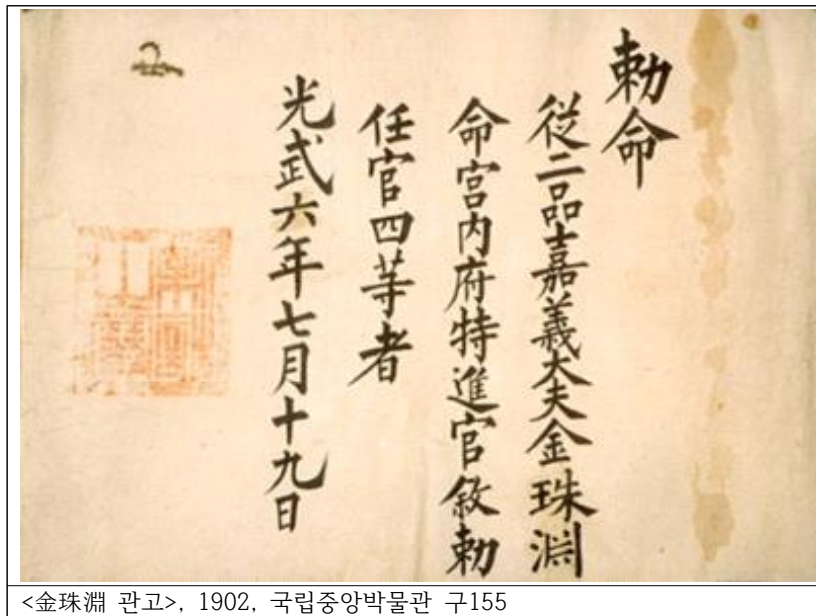 勅命
從二品嘉義大夫金珠淵
命宮內府特進官敘勅
任官四等者
光武六年七月十九日
<金珠淵 관고>, 1902, 국립중앙박물관 구155